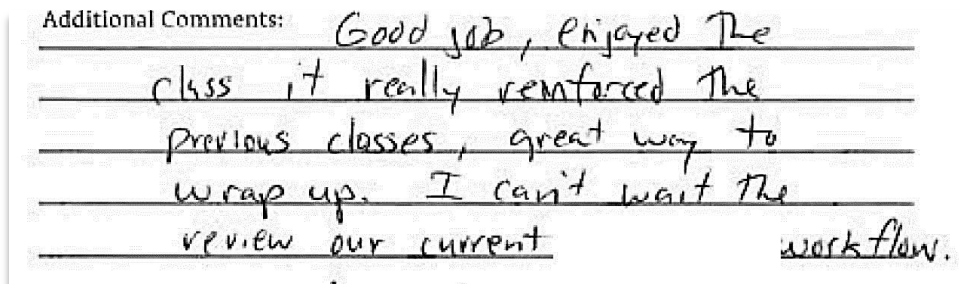 Additional Comments: Good job, enjoyed The
class it really reinforced the
previous classes, great way to
wrap up. I can't wait the
review our current workflow.